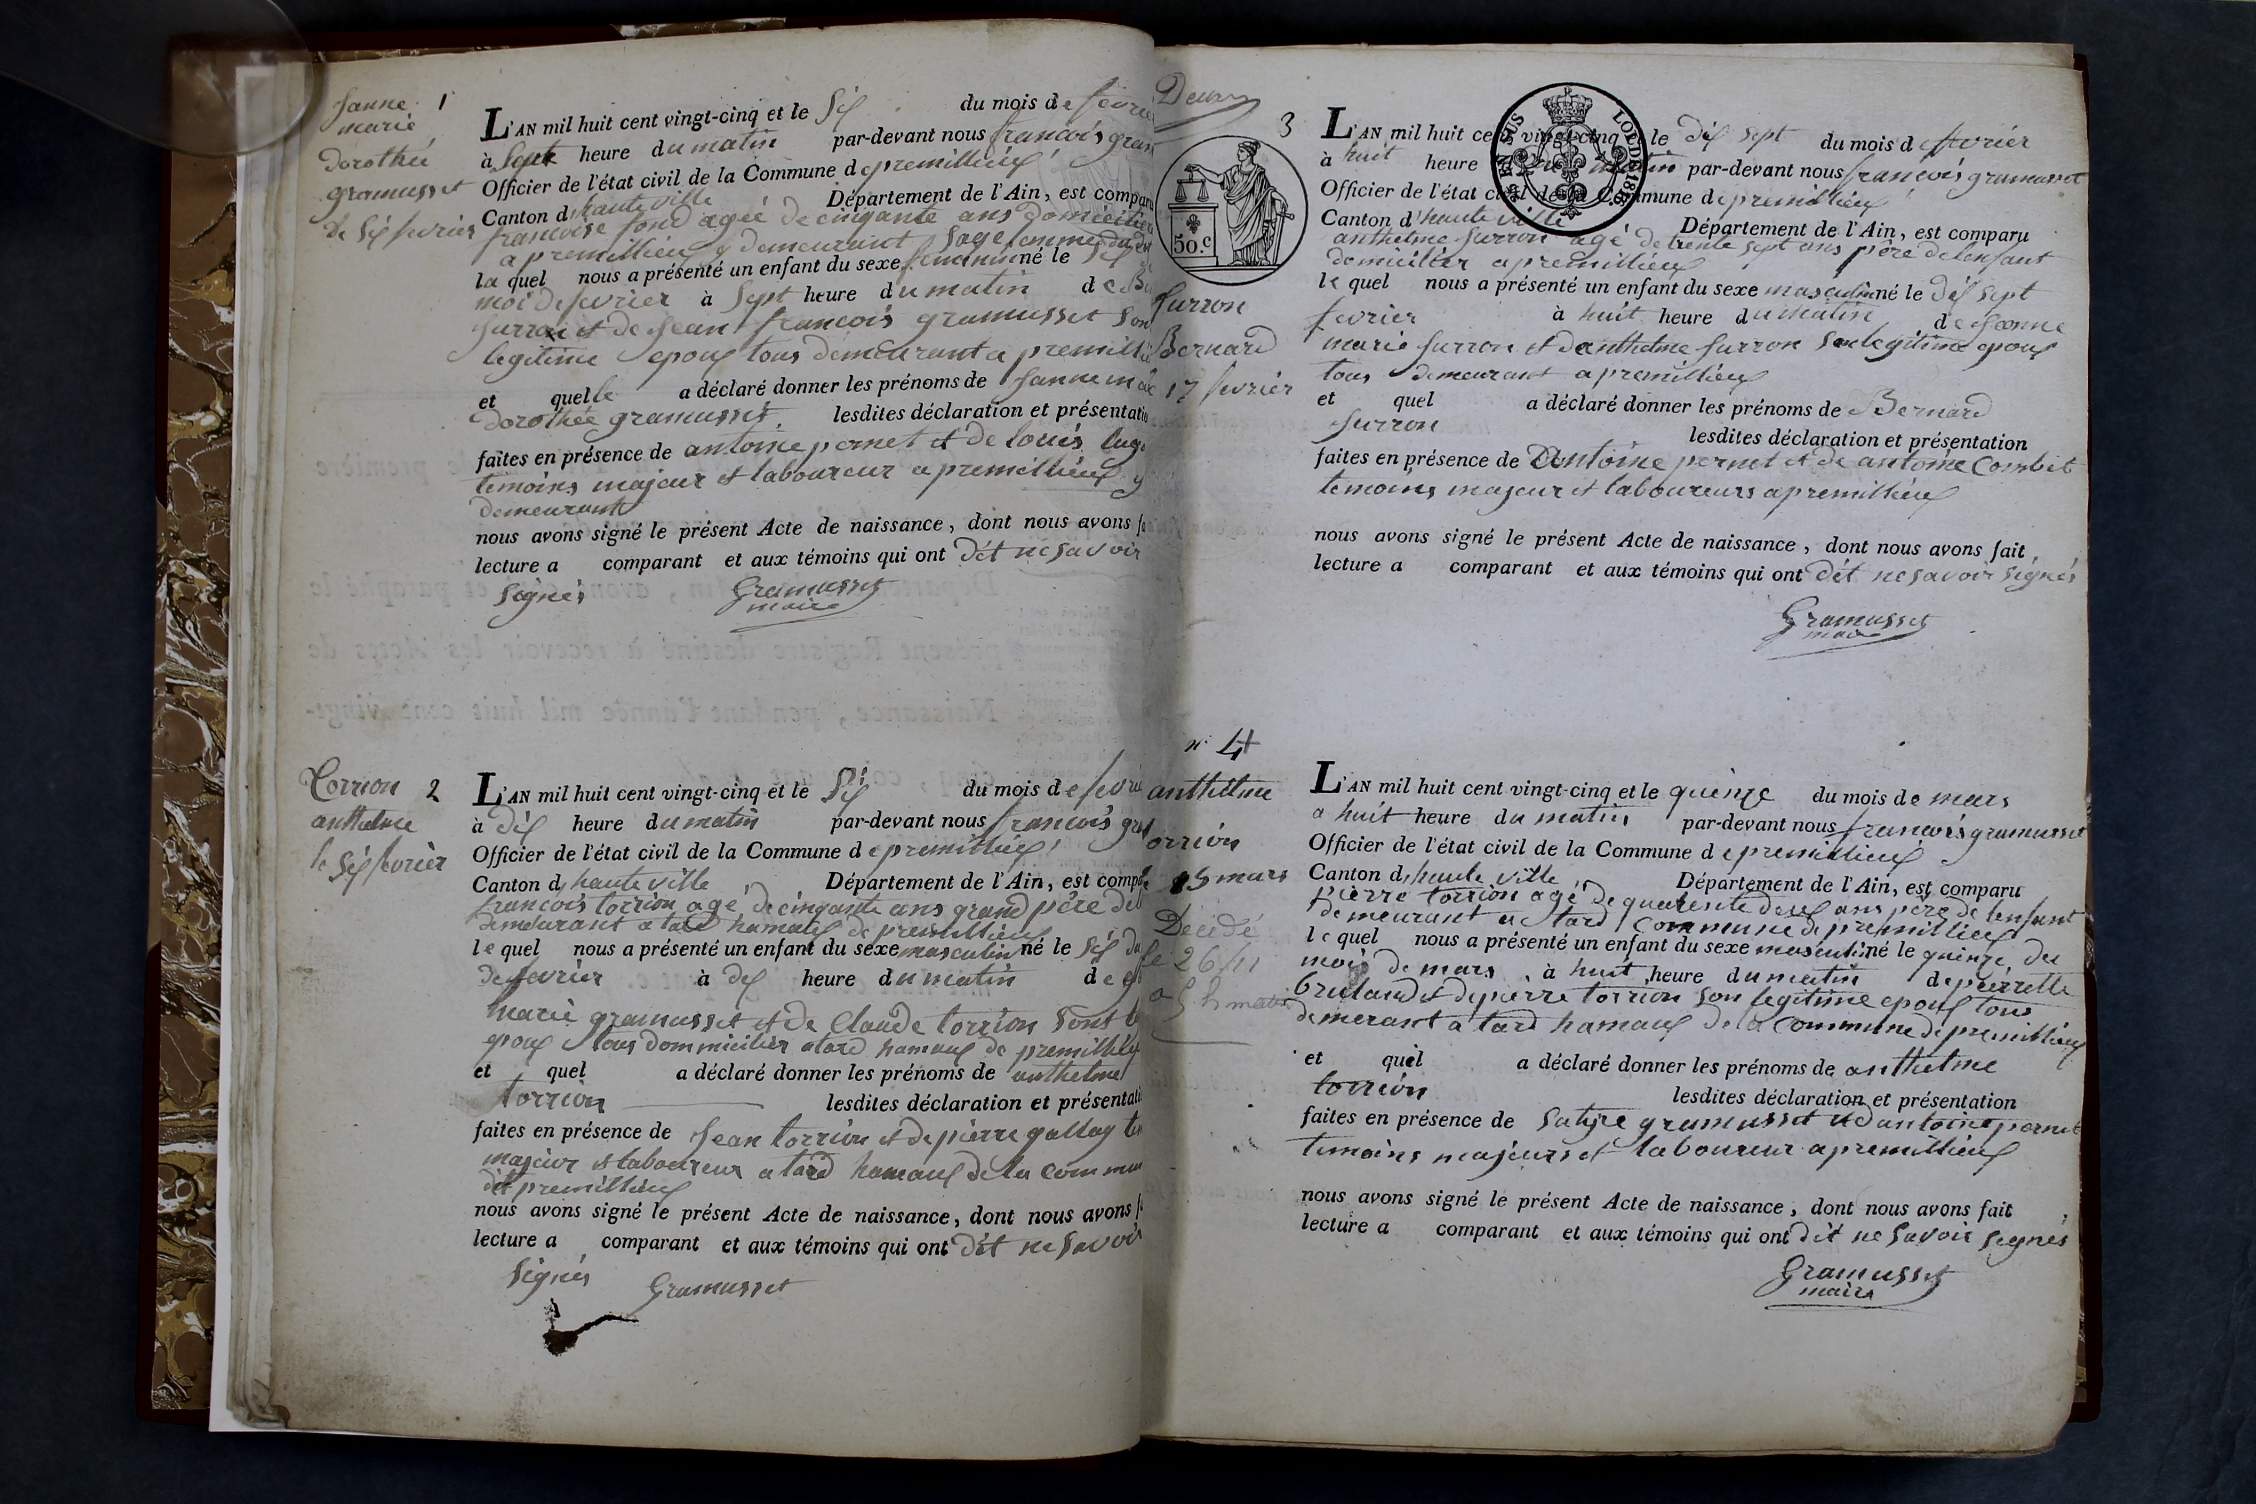 Janne 1
marie
dorothée
gramusset
le Six fevrier
L'AN mil huit cent vingt-cinq et le Six du mois de fevrie
à Sept heure du matin par-devant nous francois gram
Officier de l'état civil de la Commune de premillieux
Canton d haute ville Département de l'Ain, est comparu
francoise fond agée de cinqante ans domiciliée
a premillieux y demeurant Sage femme
la quel nous a présenté un enfant du sexe feminin né le Six
moi de fevrier à Sept heure du matin de
furron et de Jean francois gramusset Son
legitime epoux tous demeurant a premillie
et quelle a déclaré donner les prénoms de Janne marie
dorothée gramusset. lesdites déclaration et présentatio
faites en présence de antoine pernet et de louis
temoins majeur et laboureur a premillieux y
demeurant
nous avons signé le présent Acte de naissance, dont nous avons fa
lecture a comparant et aux témoins qui ont dét ne savoir
Signés Gramusset
maire
Torrion 2
anthelme
le Six fevrier
L'AN mil huit cent vingt-cinq et le Six du mois de fevrie
à dix heure du matin par-devant nous francois gra
Officier de l'état civil de la Commune de premillieux
Canton d haute ville Département de l'Ain, est compa
francois torrion agé de cinqante ans grand père de
demeurant a tard hamaux de premillieux
le quel nous a présenté un enfant du sexe masculin né le Six du
de fevrier à dix heure du matin de
marie gramusset et de Claude torrion Sont
epoux tous dommicilier a tard hamaux de premillieux
et quel a déclaré donner les prénoms de anthelme
torrion lesdites déclaration et présentati
faites en présence de Jean torrion et de pierre gallay
majeur et laboureur a tard hamaux de la commun
dit premillieux
nous avons signé le présent Acte de naissance, dont nous avons f
lecture a comparant et aux témoins qui ont dét ne Savoir
Signés Gramusset
Deux
50.c
EN SUS
LOI DE 1816
3
furron
Bernard
17 fevrier
L'AN mil huit cent vingt-cinq et le dix sept du mois d fevrier
à huit heure du matin par-devant nous francois gramusset
Officier de l'état civil de la Commune de premillieux
Canton d'haute ville Département de l'Ain, est comparu
anthelme furron agé de trente sept ans père de lenfant
domicilier a premillieux
le quel nous a présenté un enfant du sexe masculin né le dix sept
fevrier à huit heure du matin de Jeanne
marie furron et danthelme furron Son legitime epoux
tous demeurant a premillieux
et quel a déclaré donner les prénoms de Bernard
furron lesdites déclaration et présentation
faites en présence de Antoine pernet et de antoine Combet
temoins majeur et laboureurs a premillieux
nous avons signé le présent Acte de naissance, dont nous avons fait
lecture a comparant et aux témoins qui ont dét ne savoir signés
Gramusset
maire
n° 4
anthelme
orrion
15 mars
Décédé
le 26/11
a 5 h matin
L'AN mil huit cent vingt-cinq et le quinze du mois de mars
a huit heure du matin par-devant nous francois gramusset
Officier de l'état civil de la Commune de premillieux
Canton d, haute ville Département de l'Ain, est comparu
pierre torrion agé de quarente deux ans père de lenfant
demeurant a tard Commune de premillieux
le quel nous a présenté un enfant du sexe masculin né le quinze du
mois de mars à huit heure du matin de pierrette
bruland et de pierre torrion Son legitime epoux tous
demerant a tard hamaux de la Commune de premillieux
et quel a déclaré donner les prénoms de anthelme
torrion lesdites déclaration et présentation
faites en présence de gramusset et dantoine pernet
temoins majeurs et laboureur a premillieux
nous avons signé le présent Acte de naissance, dont nous avons fait
lecture a comparant et aux témoins qui ont dét ne Savoir Signés
Gramusset
maire